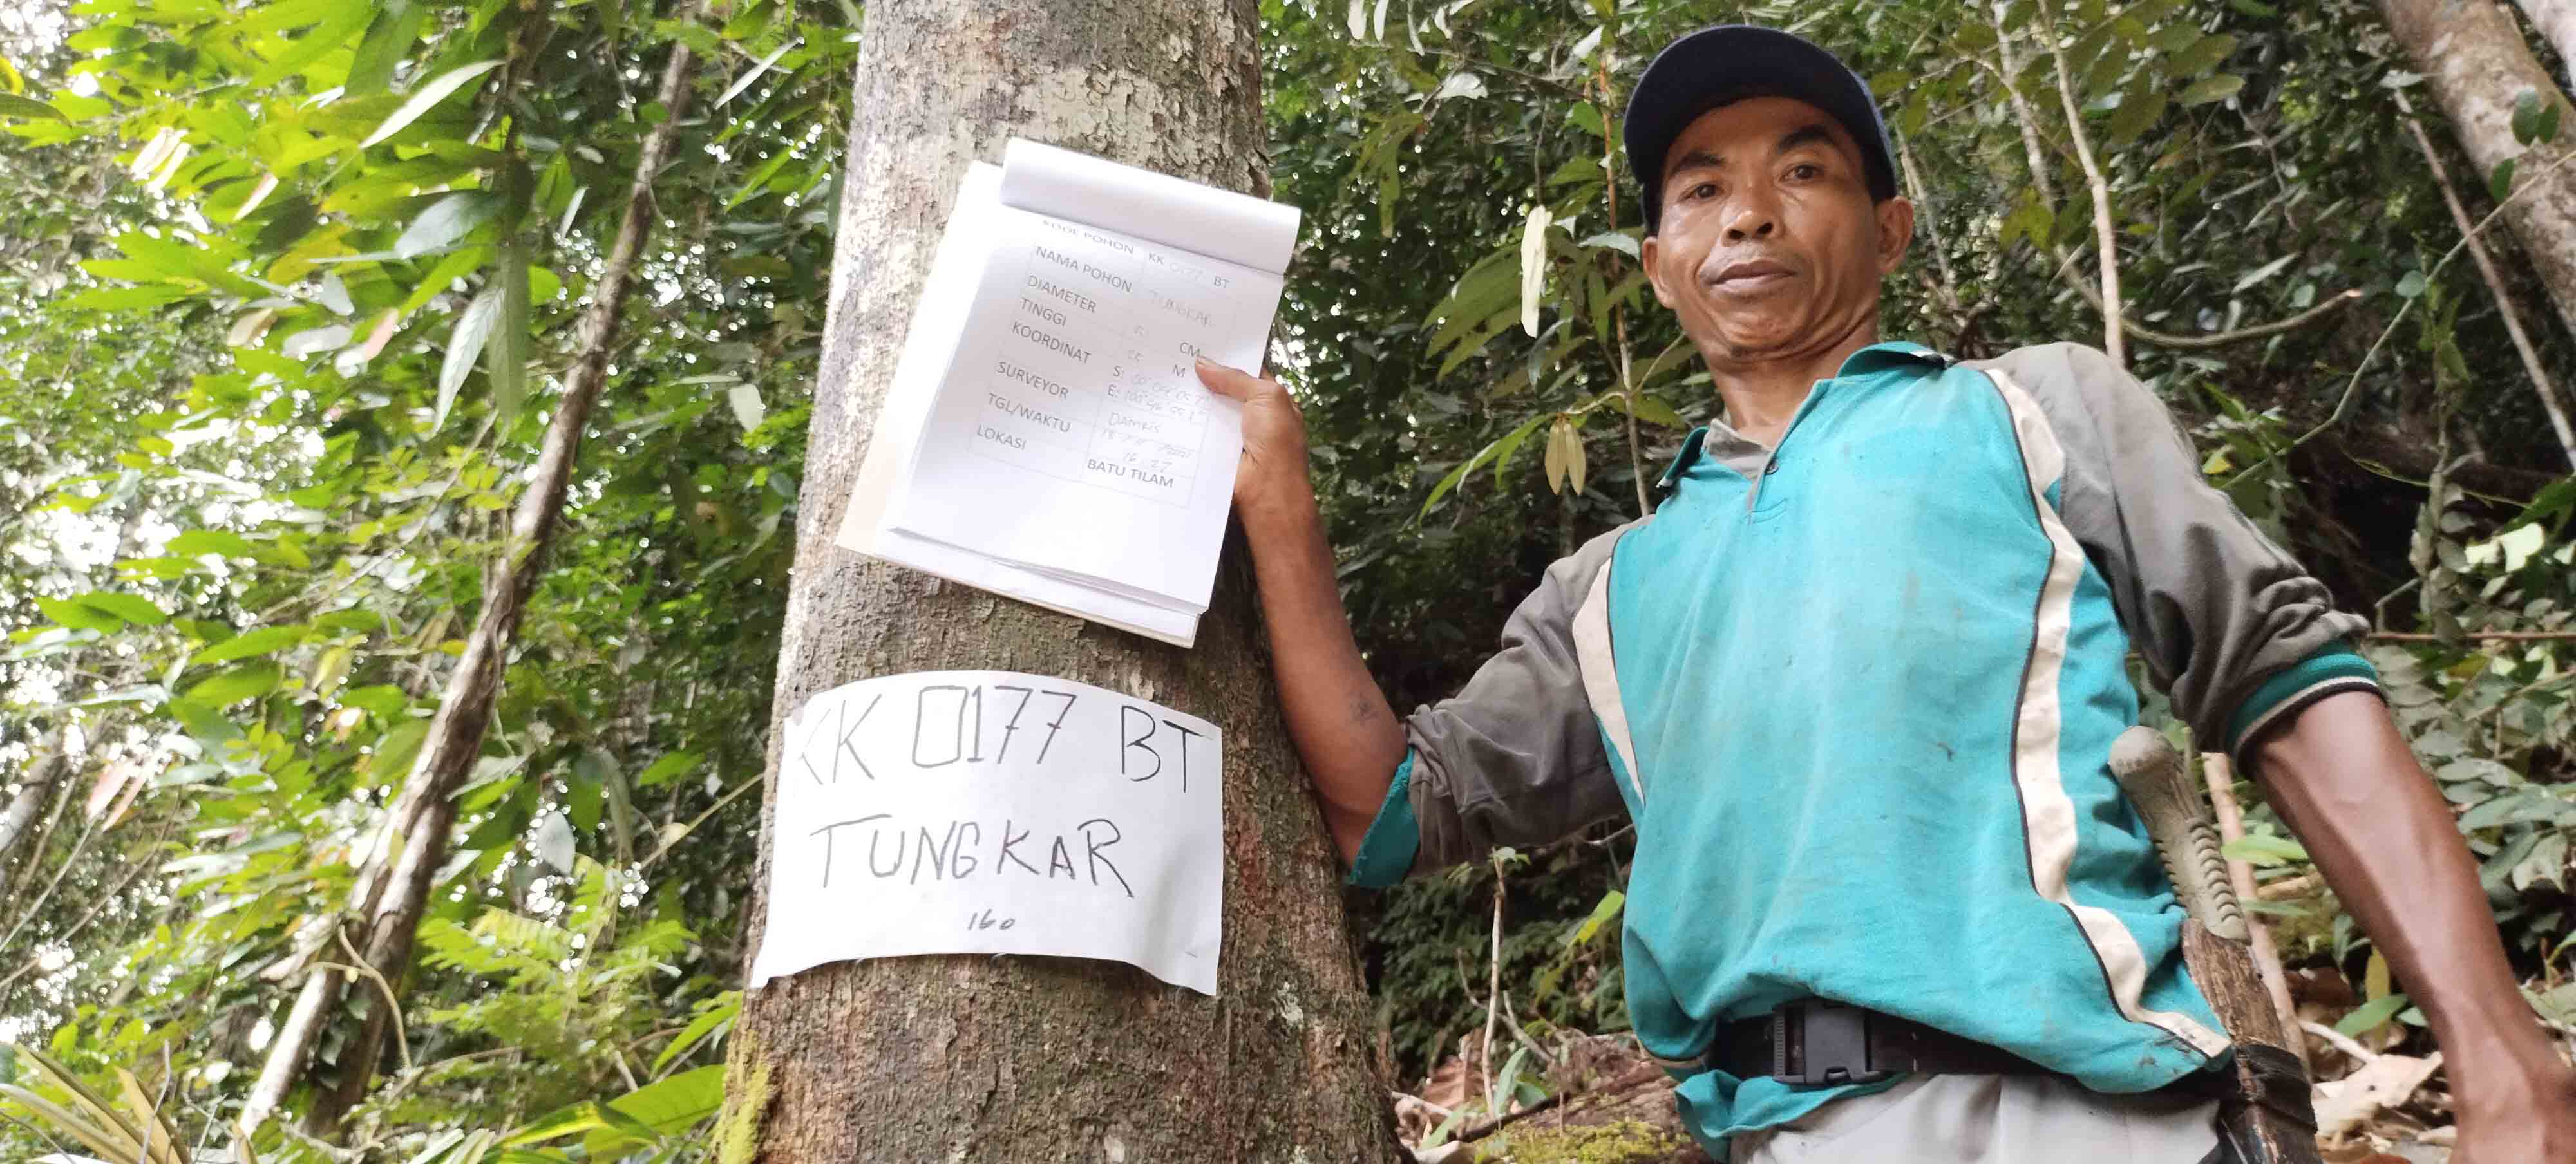 KODE POHON KK 0177 BT
NAMA POHON TUNGKAR
DIAMETER 51 CM
TINGGI M
KOORDINAT S:
E:
SURVEYOR DAMRIS
TGL/WAKTU
16.27
LOKASI BATU TILAM
KK 0177 BT
TUNGKAR
160